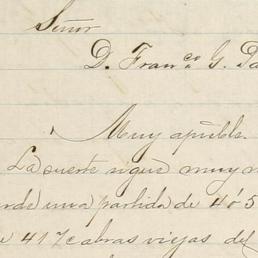 Señor
D. Franco G. Pa
Muy apible.
La suerte sigue muy m
arde una partida de 4 ó 5
e 417 cabras viejas del